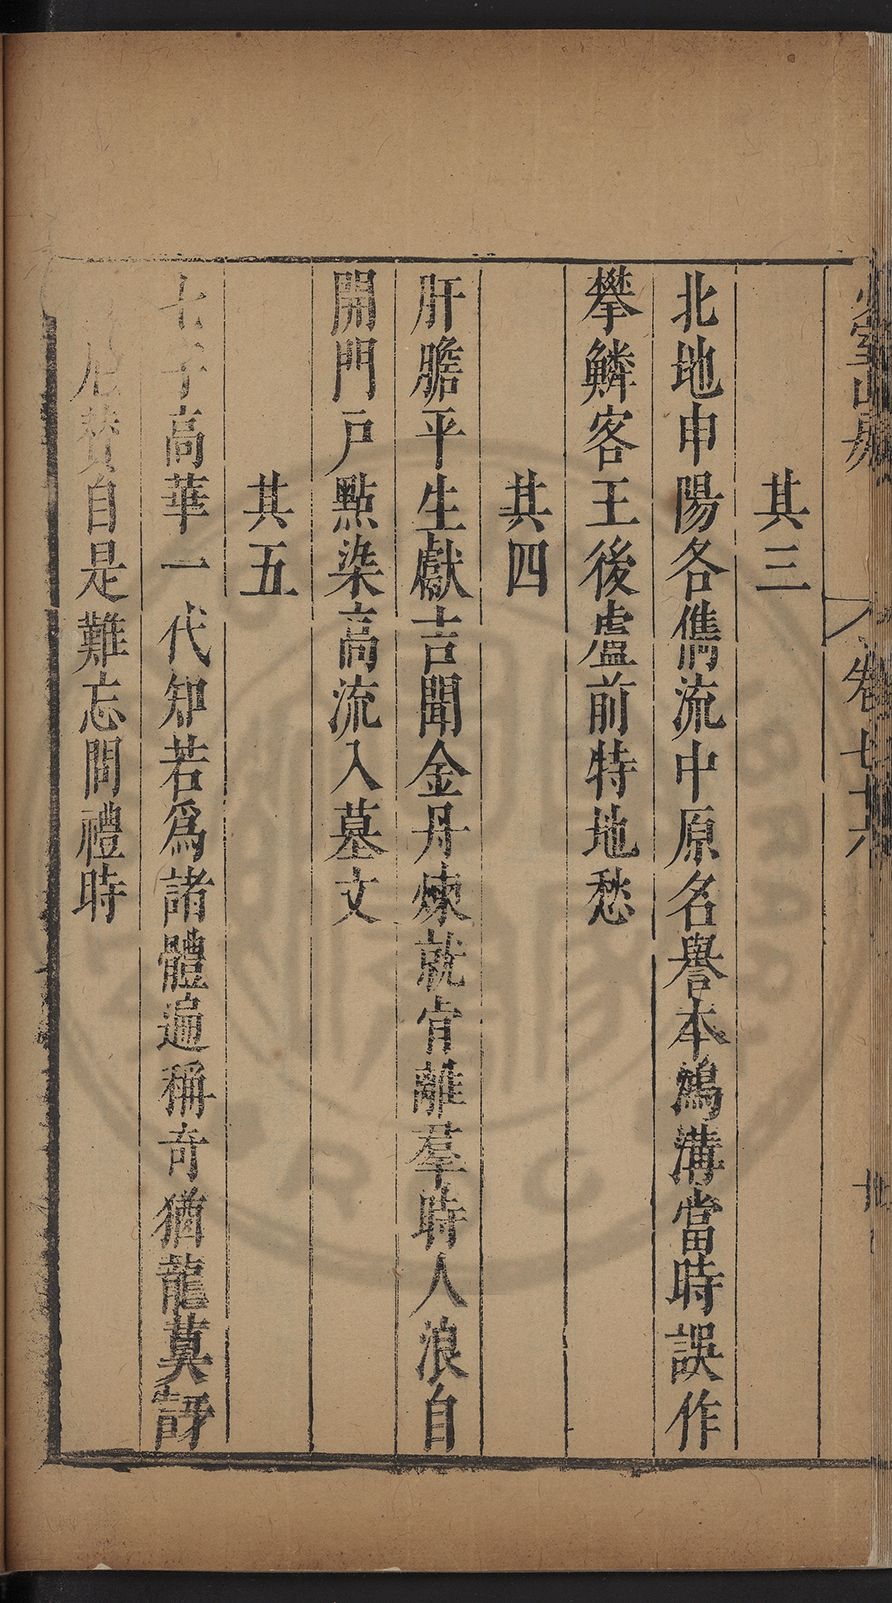 其三
北地申陽各儁流中原名譽本鴻溝當時誤作
攀鱗客王後盧前特地愁
其四
肝膽平生獻吉聞金丹煉就肯離羣時人浪自
開門戸點染高流入墓文
其五
七子高華一代知若爲諸體遍稱奇猶龍莫訝
尼贊自是難忘問禮時
山房
卷七十六
十